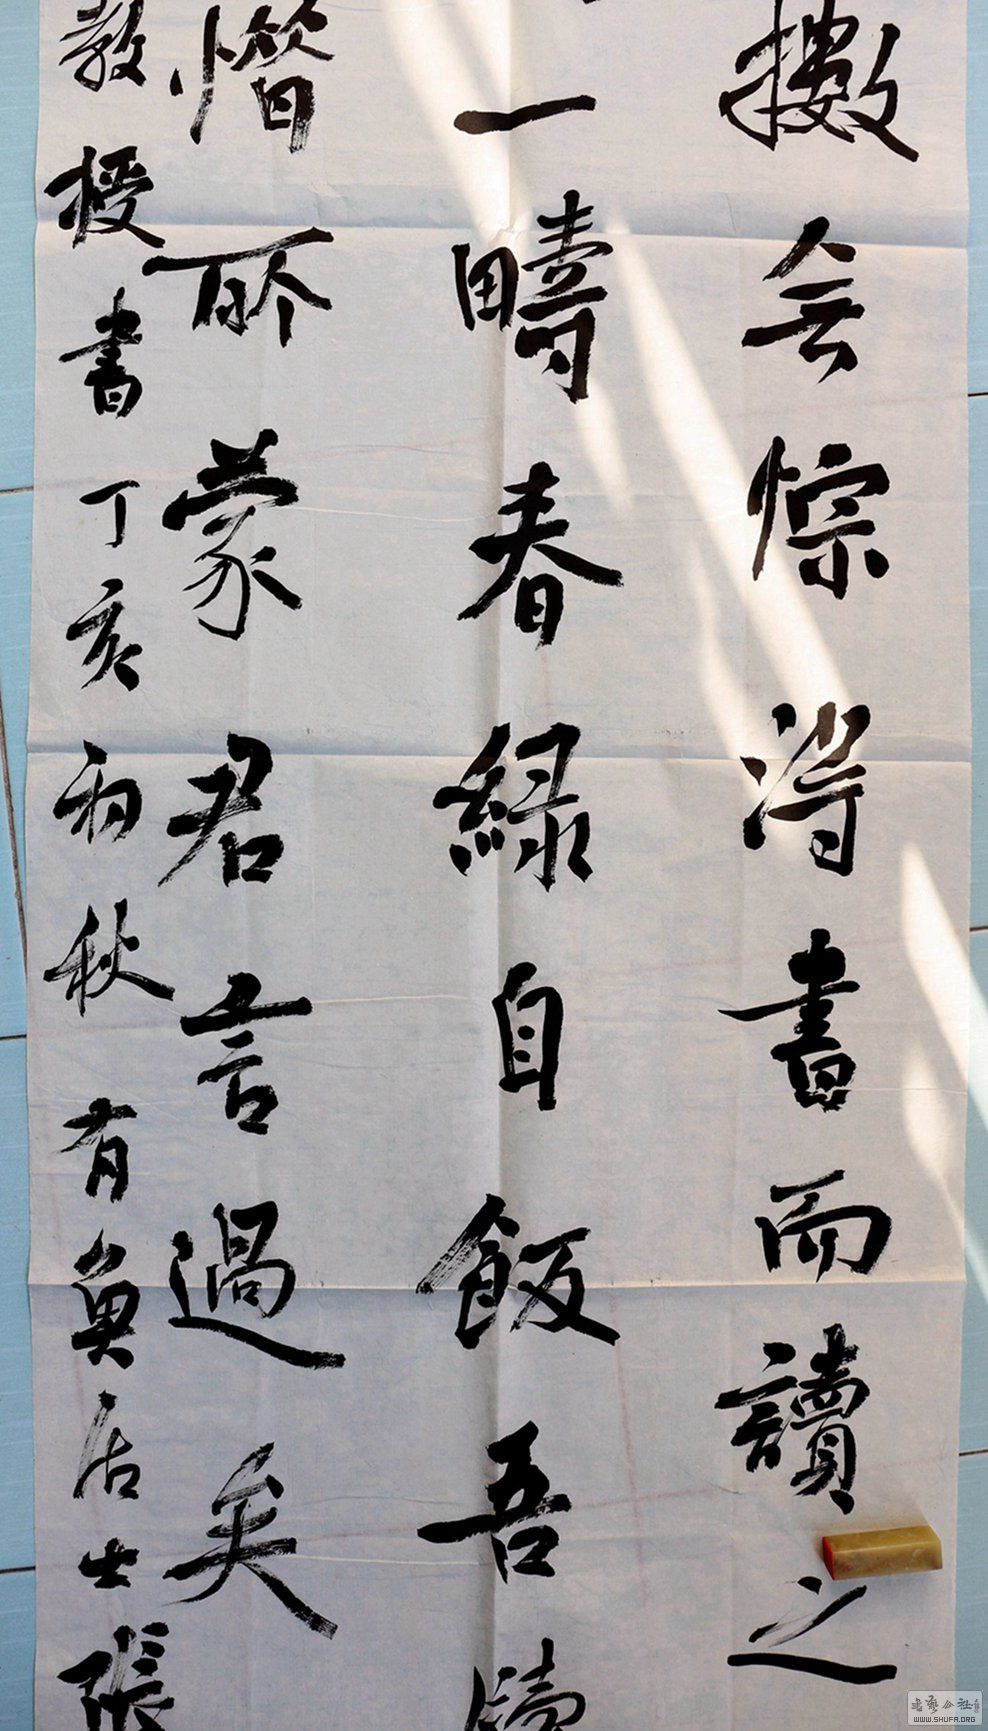 擻悰淂書而讀之
一疇春綠自飯吾
所蒙君言過矣
教授書丁亥初秋有魚居士張
書藝公社
WWW.SHUFA.ORG